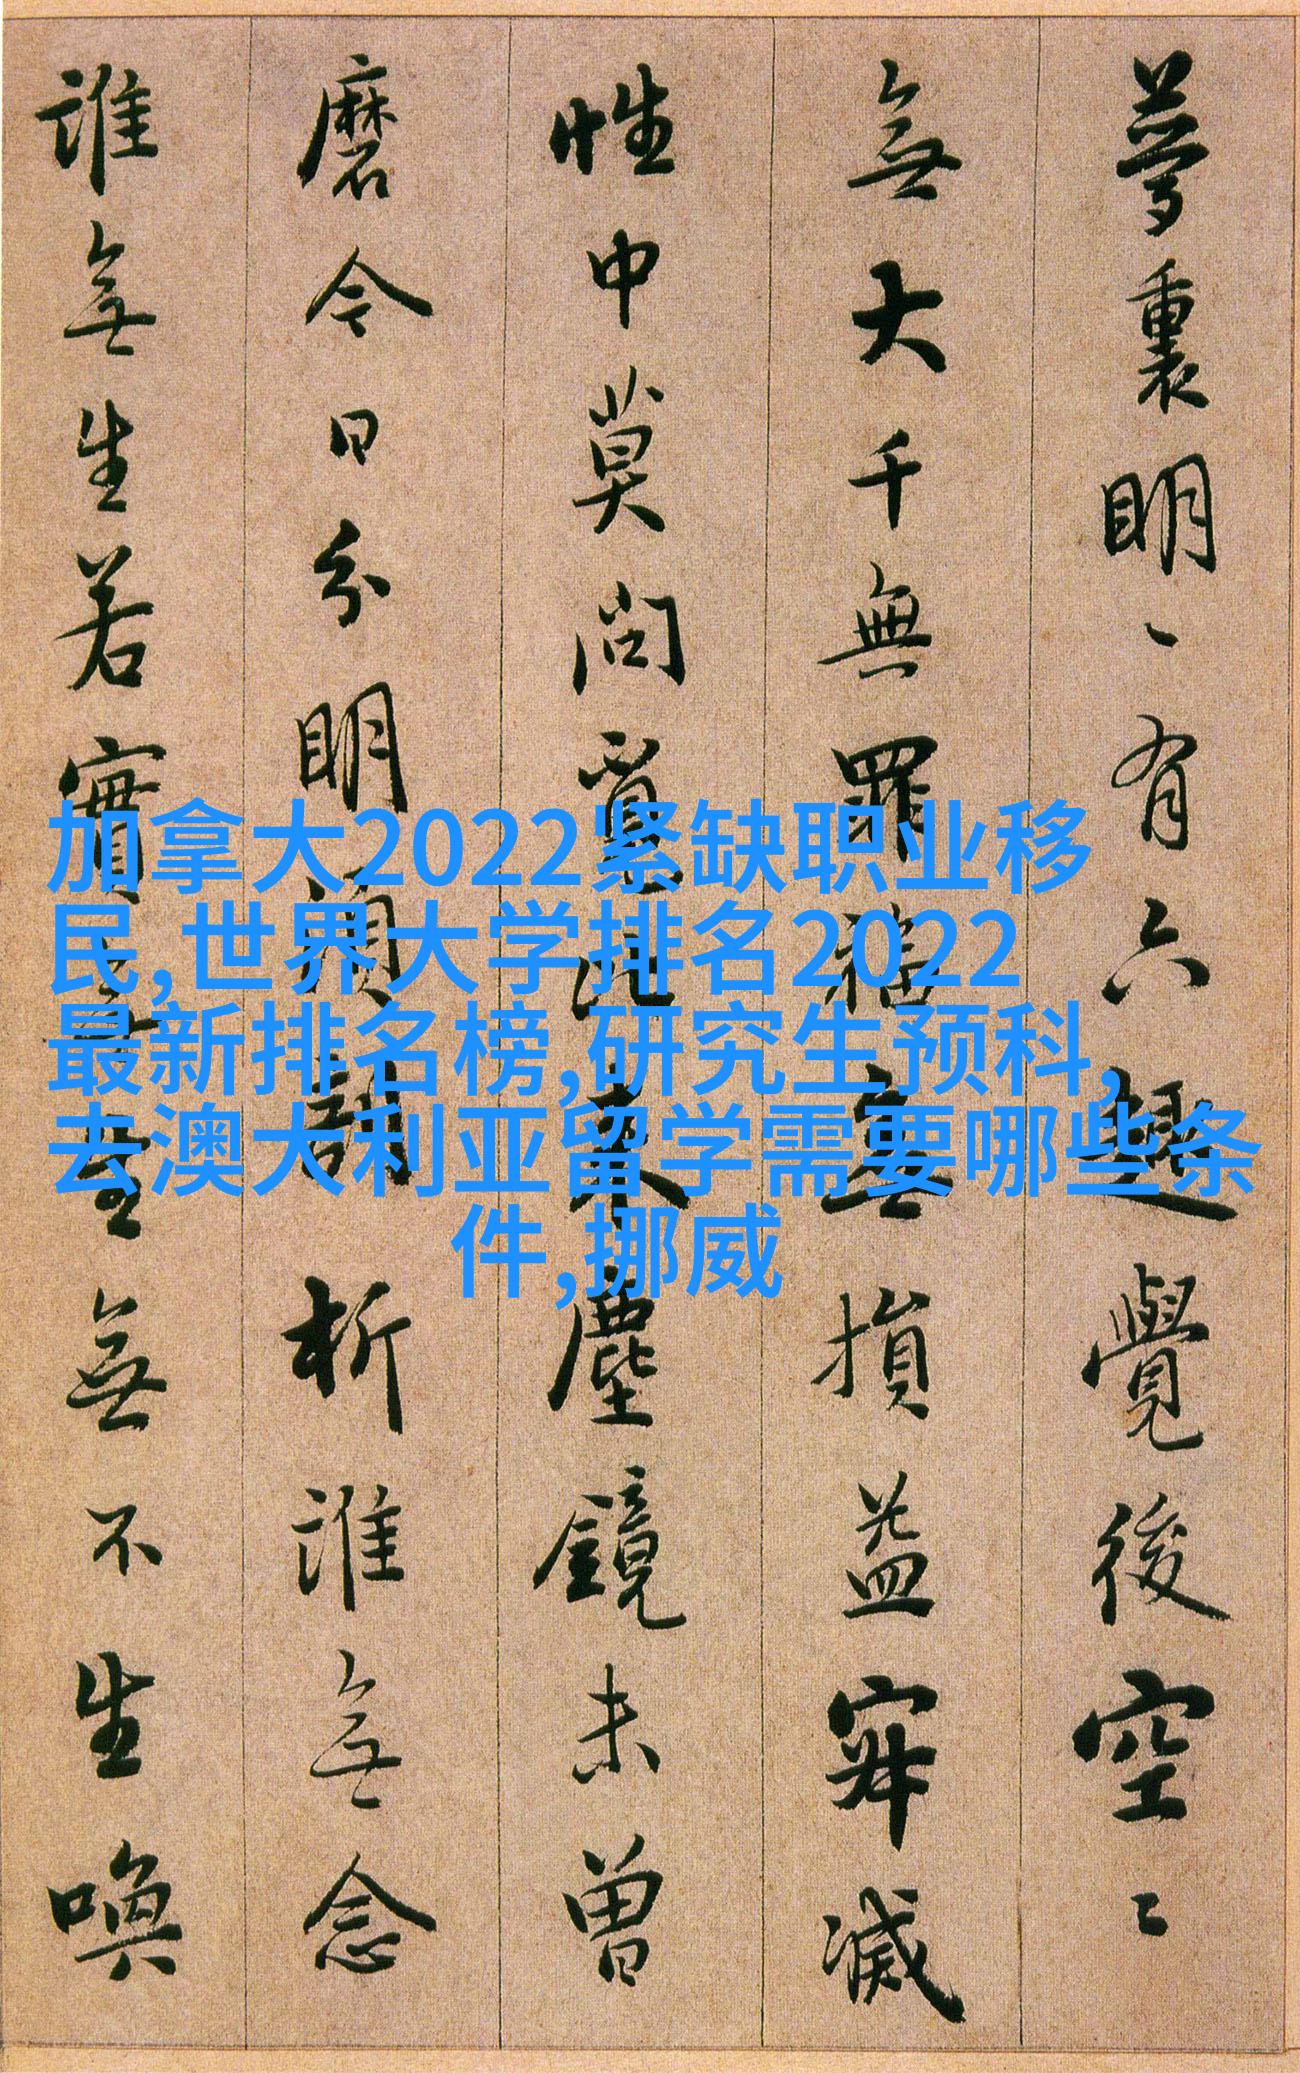 夢裏明〻有六趣覺後空〻
無大千無罪福無損益寂滅
性中莫問覓比來塵鏡未曾
磨今日分明須剖析誰無念
誰無生若實無生無不生喚
加拿大2022紧缺职业移
民,世界大学排名2022
最新排名榜,研究生预科,
去澳大利亚留学需要哪些条
件,挪威